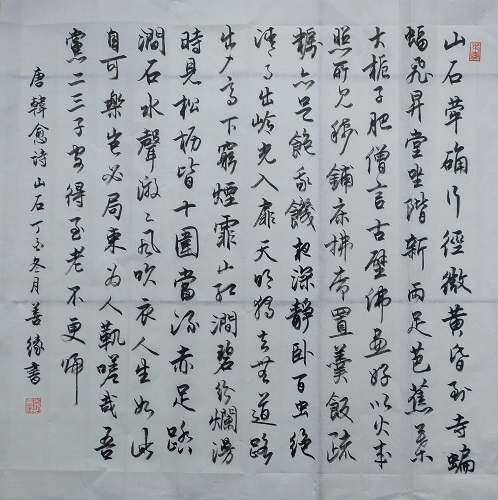 山石犖确行徑微黃昏到寺蝙
蝠飛昇堂坐階新雨足芭蕉葉
大梔子肥僧言古壁佛畫好以火来
照所見稀鋪床拂席置羹飯疏
糲亦足飽我饑夜深靜臥百虫絕
清月出嶺光入扉天明獨去無道路
出入高下窮煙霏山紅澗碧紛爛漫
時見松櫪皆十圍當流赤足踏
澗石水聲激々風吹衣人生如此
自可樂豈必局束為人鞿嗟哉吾
黨二三子安得至老不更歸
唐韓愈詩山石丁酉冬月善緣書